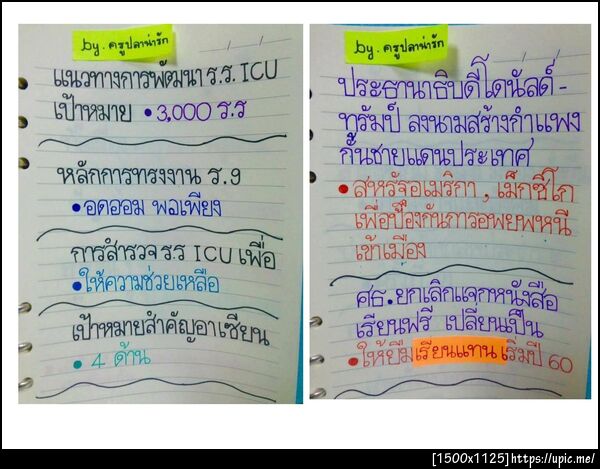 by. ครูปลาน่ารัก
แนวทางการพัฒนา ร.ร. ICU
เป้าหมาย • 3,000 ร.ร
หลักการทรงงาน ร.9
• อดออม พอเพียง
การสำรวจ รร ICU เพื่อ
• ให้ความช่วยเหลือ
เป้าหมายสำคัญอาเซียน
• 4 ด้าน
by. ครูปลาน่ารัก
ประธานาธิบดีโดนัลด์ -
ทรัมป์ ลงนามสร้างกำแพง
กั้นชายแดนประเทศ
• สหรัฐอเมริกา , เม็กซิโก
เพื่อป้องกันการอพยพหนี
เข้าเมือง
ศธ. ยกเลิกแจกหนังสือ
เรียนฟรี เปลี่ยนเป็น
• ให้ยืมเรียนแทน เริ่มปี 60
[1500x1125]https://upic.me/